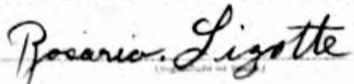 Rosario. Lizotte